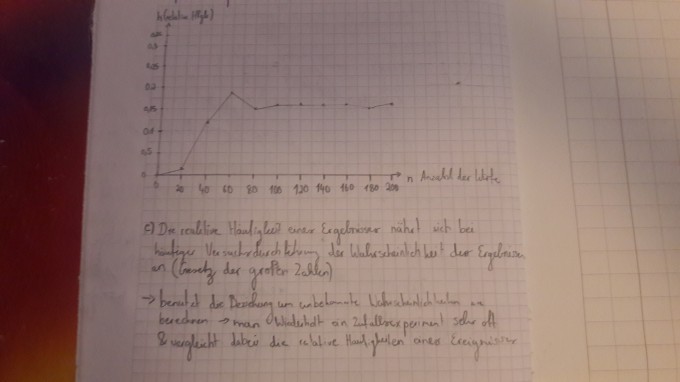 0,3
0,2
0,15
0,1
0
20 40 60 80 100 120 140 160 180 200
n Anzahl der Würfe
c) Die relative Häufigkeit eines Ergebnisses nähert sich bei
häufiger Versuchsdurchführung der Wahrscheinlichkeit des Ergebnisses
an (Gesetz der großen Zahlen)
→ benutzt die Beziehung um unbekannte Wahrscheinlichkeiten zu
berechnen → man wiederholt ein Zufallsexperiment sehr oft
& vergleicht dabei die relative Häufigkeiten eines Ereignisses